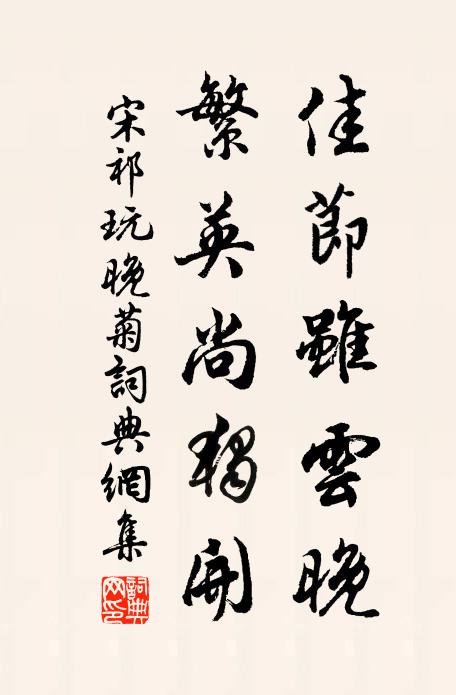 佳節雖雲晚
繁英尚獨開
宋祁玩晚菊詞典網集
詞典
网印